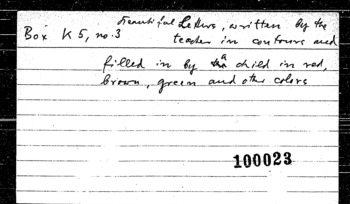 Beautiful Letters, written by the
Box K 5, no. 3
teacher in contours and
filled in by a child in red,
brown, green and other colors
100023